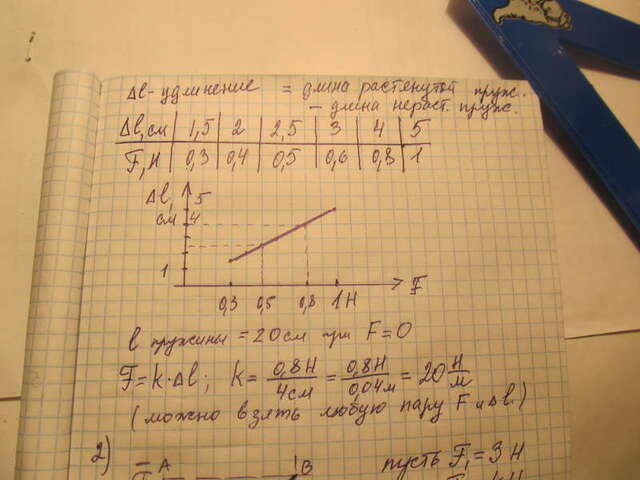 Δl - удлинение = длина растянутой пруж.
- длина нераст. пруж.
Δl, см | 1,5 | 2 | 2,5 | 3 | 4 | 5
F, Н | 0,3 | 0,4 | 0,5 | 0,6 | 0,8 | 1
Δl, 5
см 4
1
0,3 0,5 0,8 1 Н F
l пружины = 20 см при F = 0
F = k · Δl; k = 0,8 Н / 4 см = 0,8 Н / 0,04 м = 20 Н/м
(можно взять любую пару F и Δl)
2) A B пусть F₁ = 3 Н